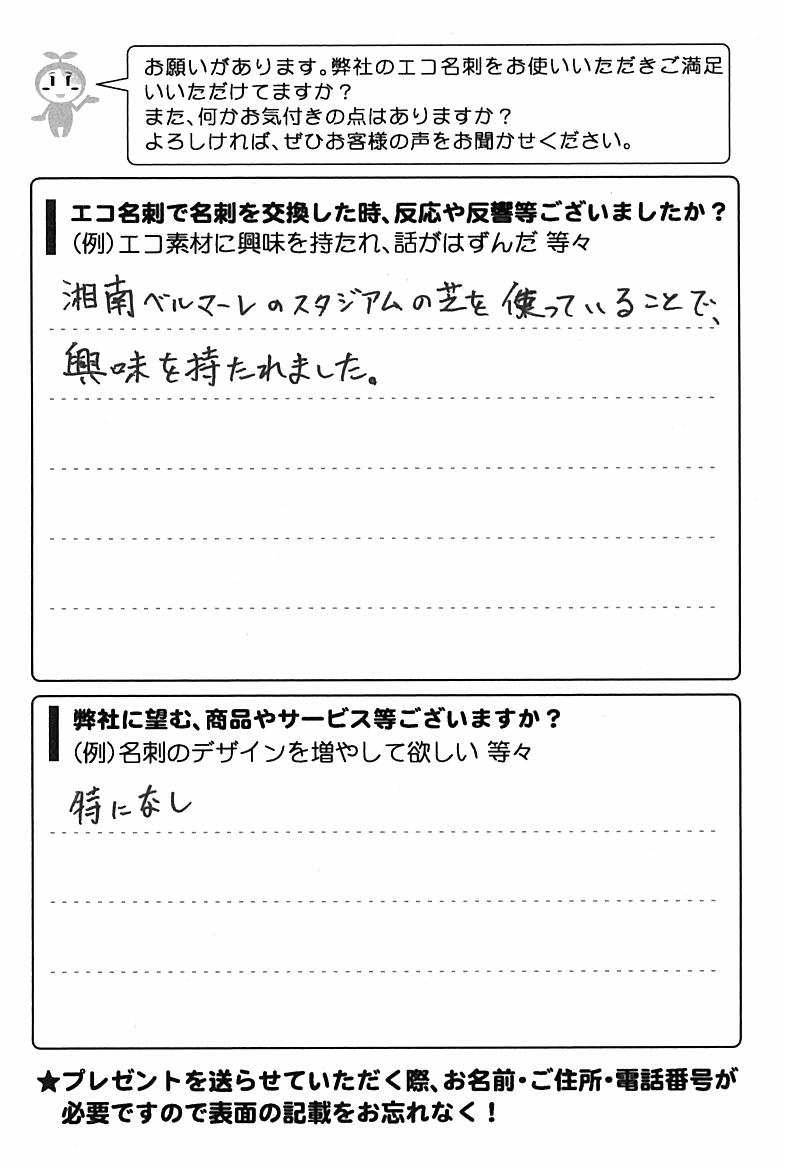 お願いがあります。弊社のエコ名刺をお使いいただきご満足
いいただけてますか？
また、何かお気付きの点はありますか？
よろしければ、ぜひお客様の声をお聞かせください。
エコ名刺で名刺を交換した時、反応や反響等ございましたか？
（例）エコ素材に興味を持たれ、話がはずんだ 等々
湘南ベルマーレのスタジアムの芝を使っていることで、
興味を持たれました。
弊社に望む、商品やサービス等ございますか？
（例）名刺のデザインを増やして欲しい 等々
特になし
★プレゼントを送らせていただく際、お名前・ご住所・電話番号が
必要ですので表面の記載をお忘れなく！